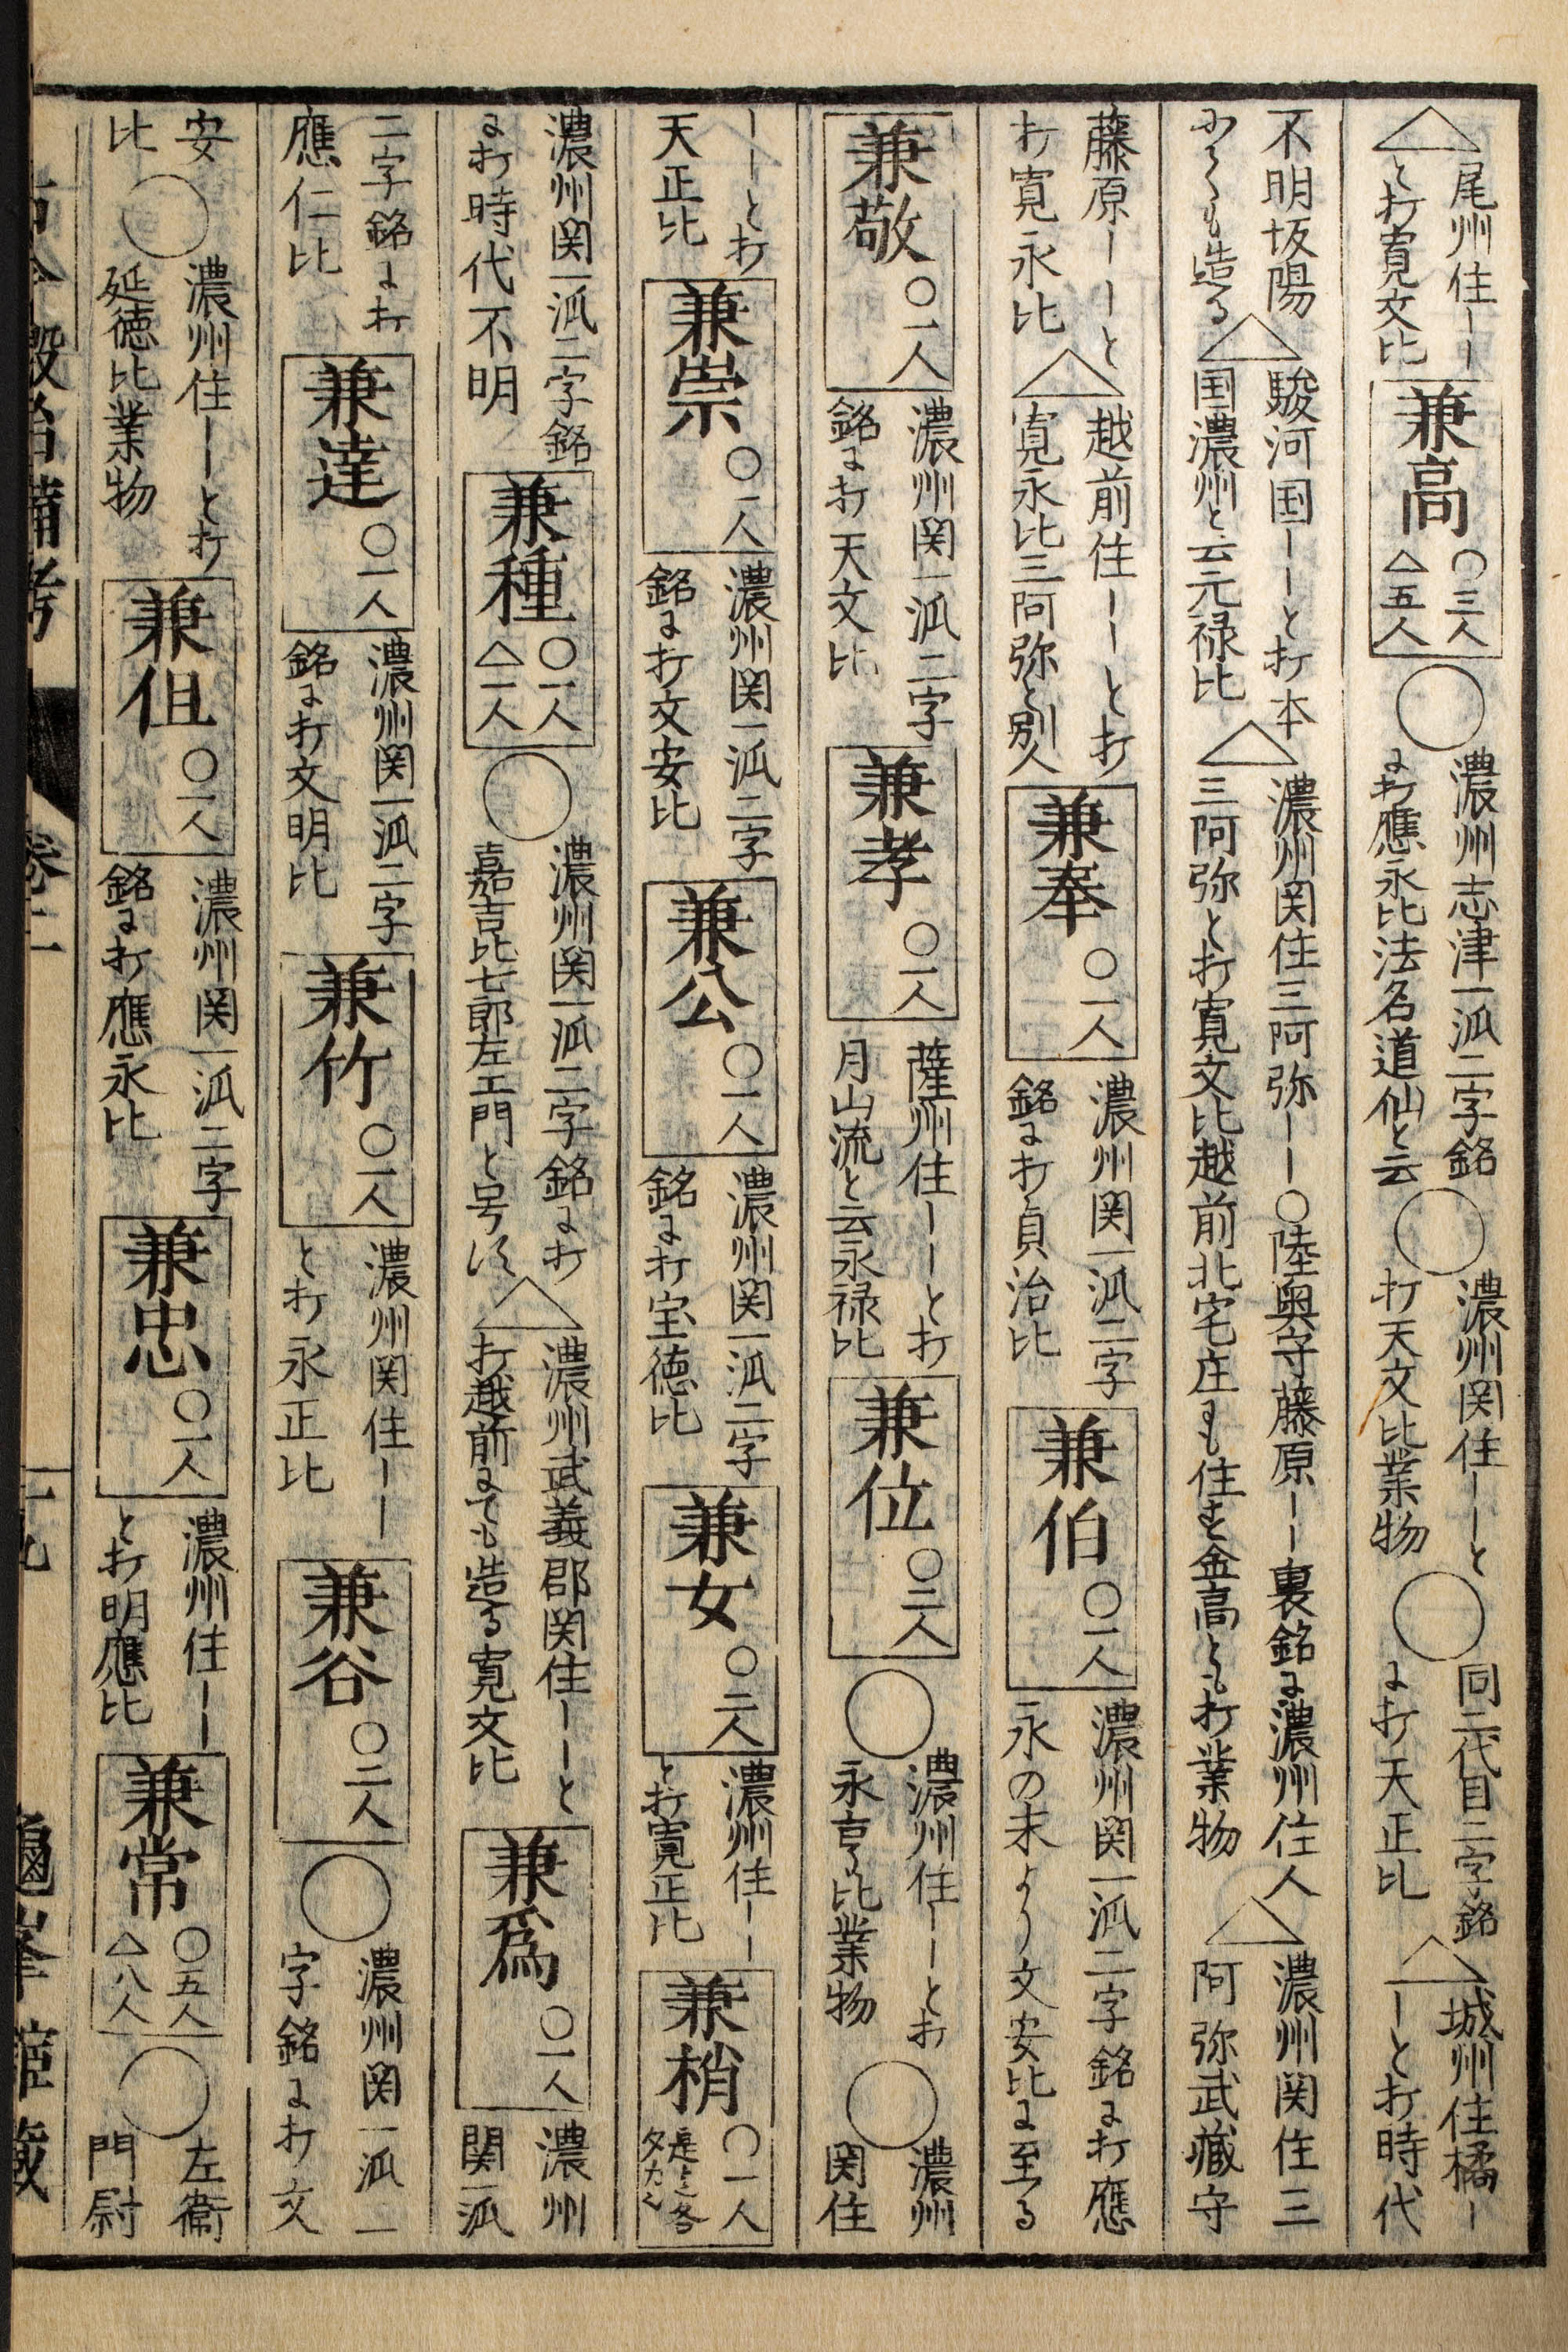 △尾州住ーー
と打寛文比
兼高 ○三人 △五人
○濃州志津一泒二字銘
に打應永比法名道仙と云
○濃州関住ーーと
打天文比業物
○同二代目二字銘
に打天正比
△城州住橘ー
ーと打時代
不明坂陽
にても造る
△駿河国ーーと打本
国濃州と云元禄比
△濃州関住三阿弥ーー○陸奥守藤原ーー裏銘に濃州住人
三阿弥と打寛文比越前北宅庄にも住す金高とも打業物
△濃州関住三
阿弥武藏守
藤原ーーと
打寛永比
△越前住ーーと打
寛永比三阿弥と別人
兼奉 ○一人
濃州関一泒二字
銘に打貞治比
兼伯 ○一人
濃州関一泒二字銘に打應
永の末より文安比に至る
兼敬 ○一人
濃州関一泒二字
銘に打天文比
兼孝 ○一人
薩州住ーーと打
月山流と云永禄比
兼位 ○二人
○濃州住ーーと打
永亨比業物
○濃州
関住
ーーと打
天正比
兼崇 ○一人
濃州関一泒二字
銘に打文安比
兼公 ○一人
濃州関一泒二字
銘に打宝徳比
兼女 ○二人
濃州住ーー
と打寛正比
兼梢 ○一人
濃州
関一泒二字銘
に打時代不明
兼種 ○一人 △一人
○濃州関一泒二字銘に打
嘉吉比七郎左エ門と号す
△濃州武義郡関住ーーと
打越前にても造る寛文比
兼爲 ○一人
濃州
関一泒
二字銘に打
應仁比
兼達 ○一人
濃州関一泒二字
銘に打文明比
兼竹 ○一人
濃州関住ーー
と打永正比
兼谷 ○二人
○濃州関一泒二
字銘に打文
安
比
○濃州住ーーと打
延徳比業物
兼伹 ○一人
濃州関一泒二字
銘に打應永比
兼忠 ○一人
濃州住ーー
と打明應比
兼常 ○五人 △八人
○左衞
門尉